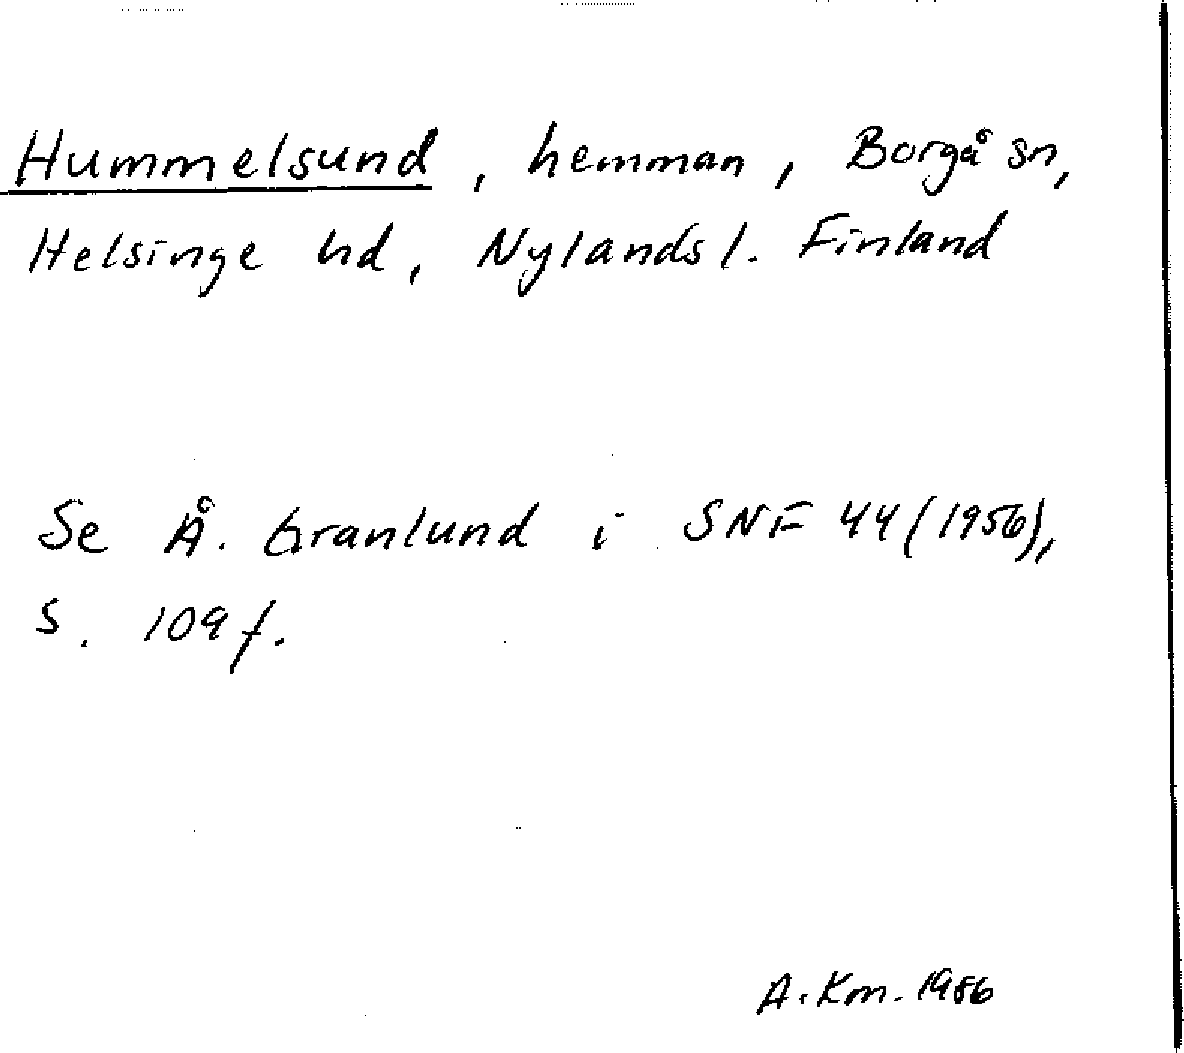 Hummelsund, hemman, Borgå sn,
Helsinge hd, Nylands l. Finland
Se Å. Granlund i SNF 44 (1956),
s. 109 f.
A. Km. 1986